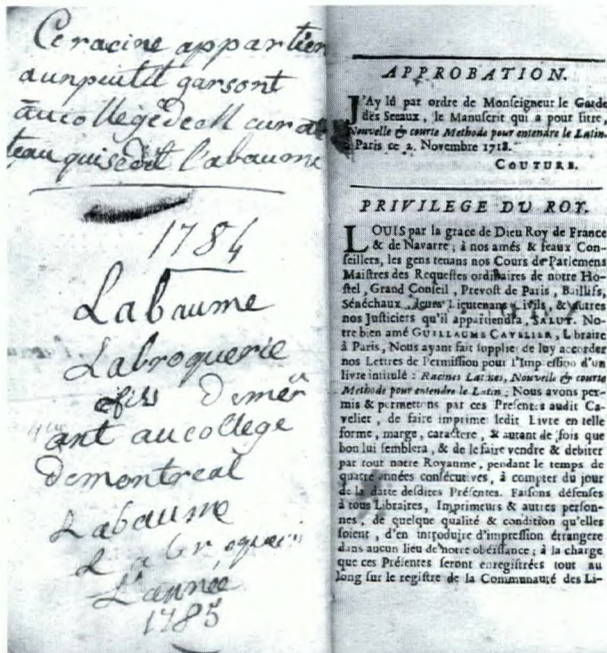 Ce racine appartien
a un peutit garsont
au collége de M curat
teau qui se dit l'abaume
1784
Labaume
Labroquerie
fils demer
ant au college
de montreal
Labaume
Labroqueri
L'année
1785
APPROBATION.
J'Ay lû par ordre de Monseigneur le Garde
des Sceaux, le Manuscrit qui a pour titre,
Nouvelle & courte Methode pour entendre le Latin.
à Paris ce 2. Novembre 1718.
COUTURE.
PRIVILEGE DU ROY.
LOUIS par la grace de Dieu Roy de France
& de Navarre ; à nos amés & feaux Con-
seillers, les gens tenans nos Cours de Parlemens
Maistres des Requestes ordinaires de notre Ho-
stel, Grand Conseil, Prevost de Paris, Baillifs,
Sénéchaux, leurs Lieutenans Civils, & autres
nos Justiciers qu'il appartiendra, SALUT. No-
tre bien amé GUILLAUME CAVELIER, Libraire
à Paris, Nous ayant fait supplier de luy accorder
nos Lettres de Permission pour l'Impression d'un
livre intitulé : Racines Latines, Nouvelle & courte
Methode pour entendre le Latin ; Nous avons per-
mis & permettons par ces Presentes audit Ca-
velier, de faire imprimer ledit Livre en telle
forme, marge, caractere, & autant de fois que
bon lui semblera, & de le faire vendre & debiter
par tout notre Royaume, pendant le temps de
quatre années consécutives, à compter du jour
de la datte desdites Présentes. Faisons défenses
à tous Libraires, Imprimeurs & autres person-
nes, de quelque qualité & condition qu'elles
soient, d'en introduire d'impression étrangere
dans aucun lieu de notre obéissance ; à la charge
que ces Présentes seront enregistrées tout au
long sur le registre de la Communauté des Li-